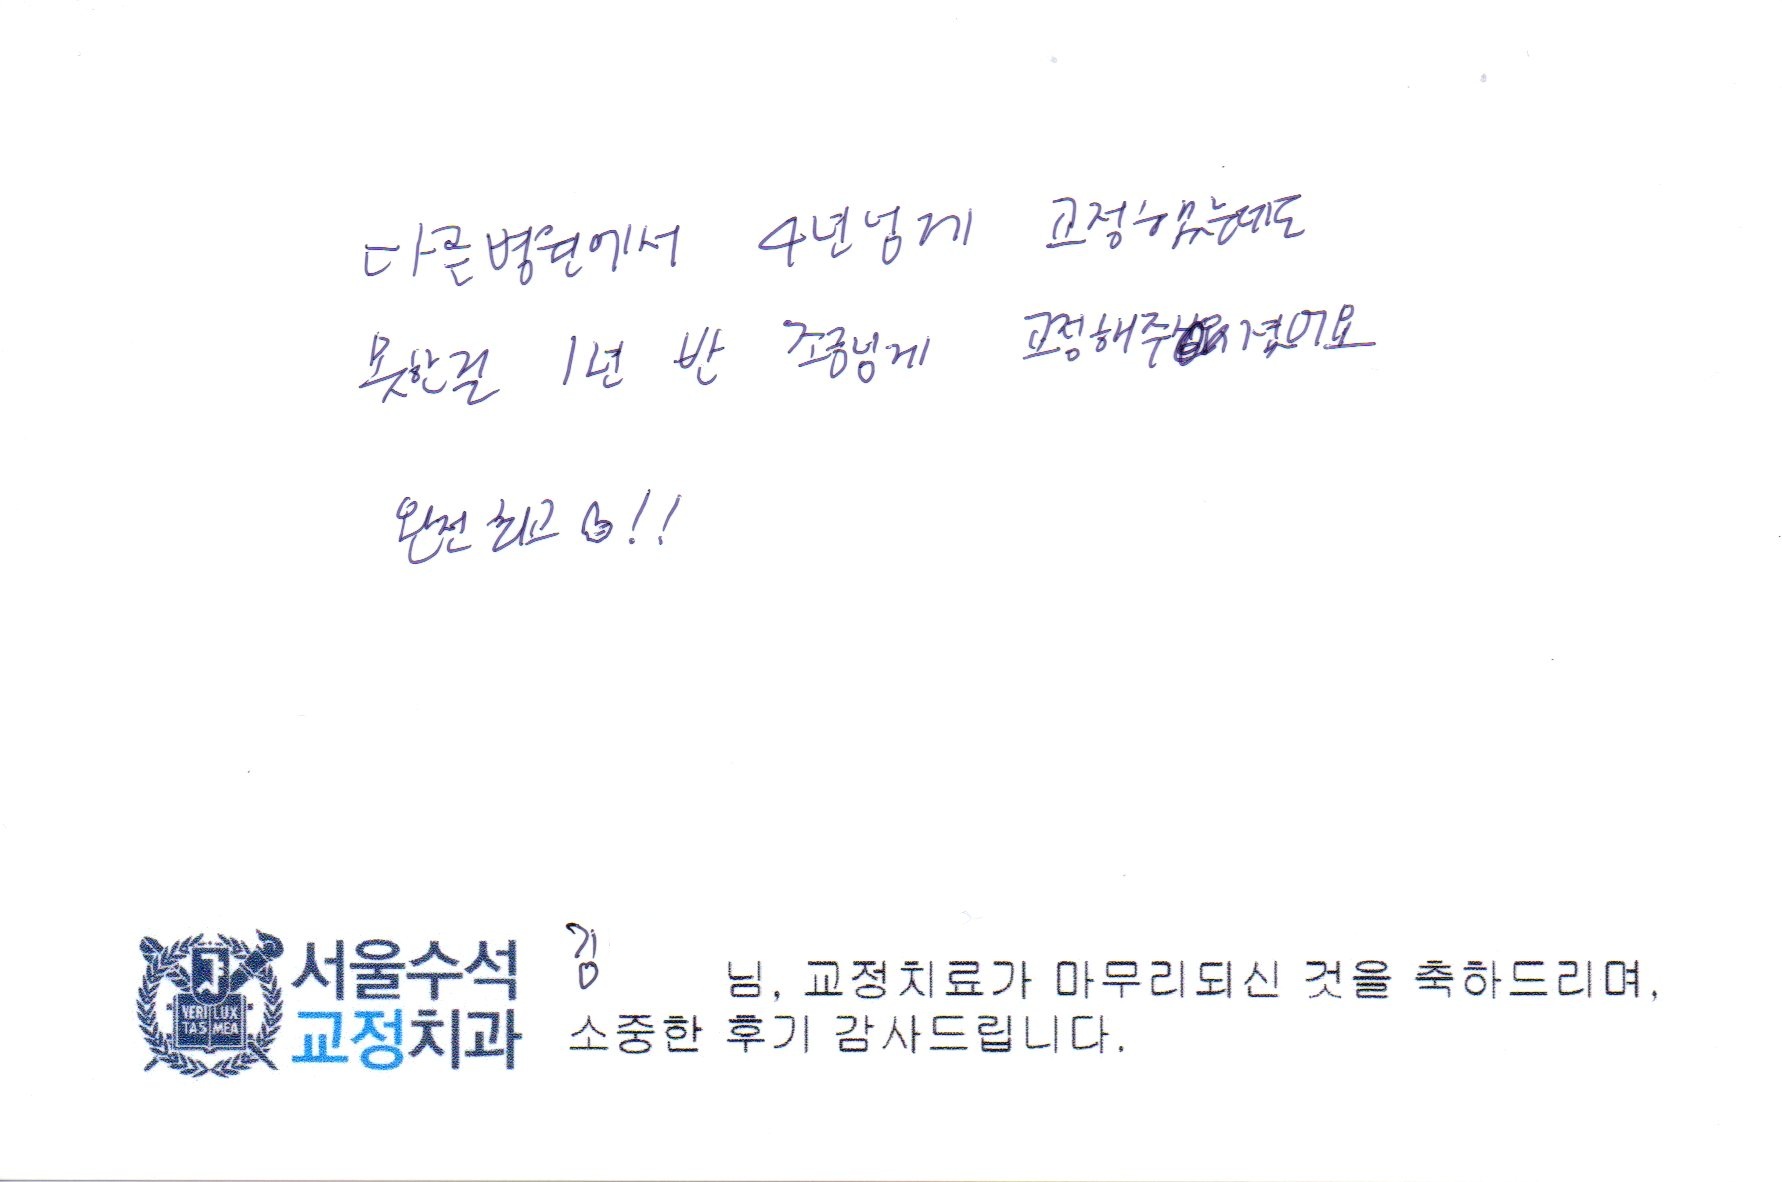 다른병원에서 4년넘게 교정했는데도
못한걸 1년 반 조금넘게 교정해주셨어요
완전 최고 !!
서울수석
교정치과
VERI LUX
TAS MEA
김 님, 교정치료가 마무리되신 것을 축하드리며,
소중한 후기 감사드립니다.